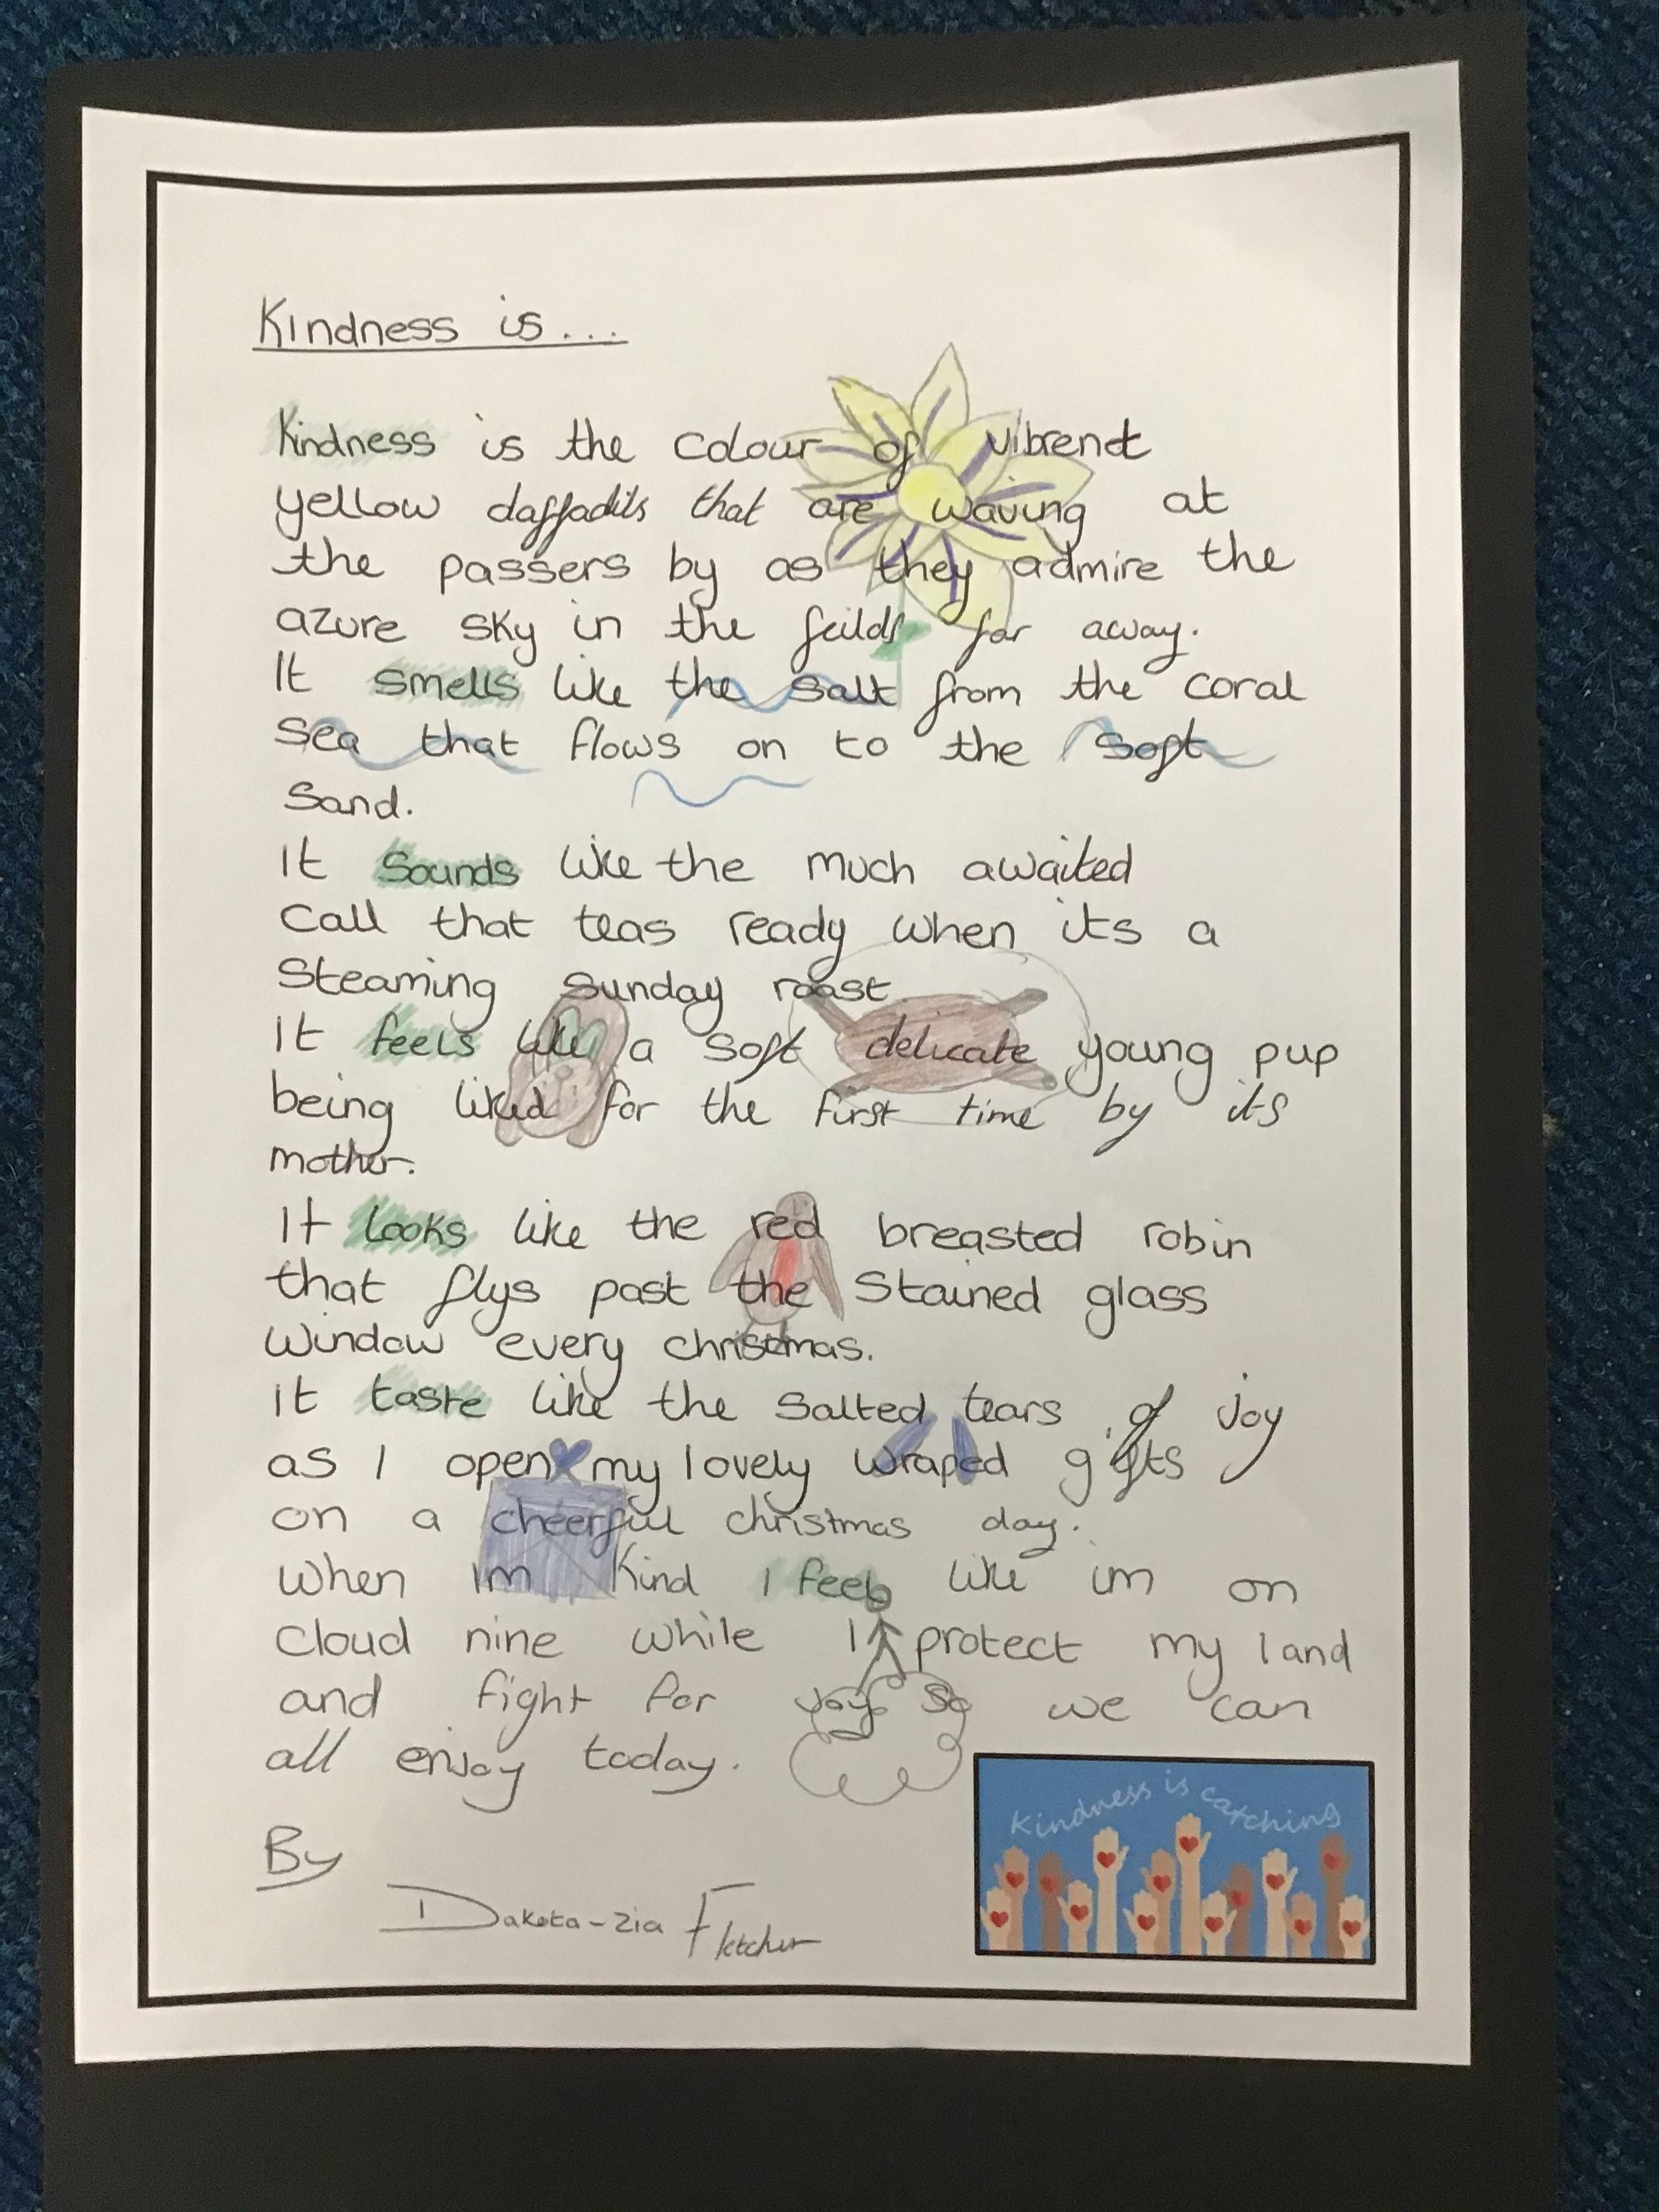 Kindness is...
Kindness is the colour of vibrent
yellow daffadils that are waving at
the passers by as they admire the
azure sky in the feilds far away.
It smells like the salt from the coral
sea that flows on to the soft
sand.
It sounds like the much awaited
call that teas ready when its a
steaming sunday roast.
It feels like a soft delicate young pup
being liked for the first time by its
mother.
It looks like the red breasted robin
that flys past the stained glass
window every christmas.
it taste like the salted tears of joy
as I open my lovely wraped gifts
on a cheerful christmas day.
when im kind I feel like im on
cloud nine while I protect my land
and fight for joy so we can
all enjoy today.
By
Dakota-Zia Fletcher
Kindness is catching